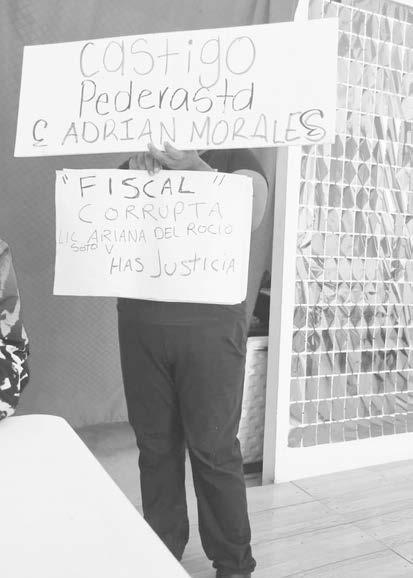 Castigo
Pederasta
C ADRIAN MORALES
"FISCAL"
CORRUPTA
LIC ARIANA DEL ROCIO
Soto V
HAS JUSTICIA